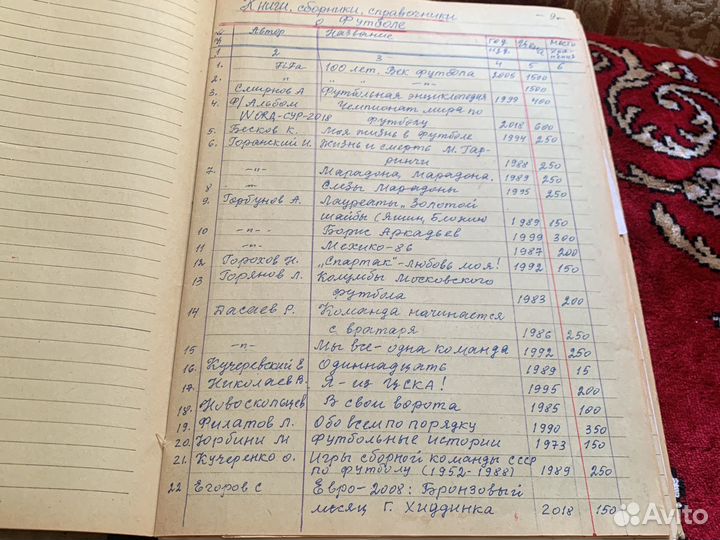 Книги, сборники, справочники
о Футболе
- 9 -
№ Автор Название год изд. цена место хранения
1 2 3 4 5 6
1. FiFa 100 лет. Век футбола 2005 1500
2. " " " " -"- 1500
3. Смирнов А Футбольная энциклопедия 1999 400
4. Ф/Альбом Чемпионат мира по
WORA-CYP-2018 футболу 2018 600
5. Бесков К. Моя жизнь в футболе 1994 250
6. Горанский И. Жизнь и смерть М. Гар-
ринчи 1988 250
7. -"- Марадона, Марадона. 1989 250
8 -"- Слёзы Марадоны 1995 250
9. Горбунов А. Лауреаты „Золотой
шайбы (Яшин, Блохин 1989 150
10 -"- Борис Аркадьев 1999 300
11 -"- Мехико-86 1987 200
12 Горохов Н. „Спартак"-любовь моя! 1992 150
13 Горянов Л. Колумбы Московского
футбола 1983 200
14 Дасаев Р. Команда начинается
с вратаря 1986 250
15 -"- Мы все - одна команда 1992 250
16. Кучеревский Е Одиннадцать 1989 15
17. Николаев В. Я - из ЦСКА! 1995 200
18. Новоскольцев В свои ворота 1985 100
19. Филатов Л. Обо всем по порядку 1990 350
20. Юрбини М Футбольные истории 1973 150
21. Кучеренко О. Игры сборной команды СССР
по футболу (1952-1988) 1989 250
22 Егоров С Евро-2008: Бронзовый
месяц Г. Хиддинка 2018 150
Avito